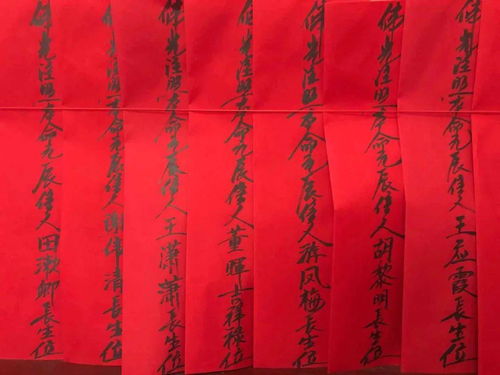 佛光注照本命元辰信人王亚霞長生位
佛光注照本命元辰信人胡黎明長生位
佛光注照本命元辰信人凤梅長生位
佛光注照本命元辰信人董暉吉祥禄位
佛光注照本命元辰信人王瀟瀟長生位
佛光注照本命元辰信人謝偉清長生位
佛光注照本命元辰信人田漱卿長生位